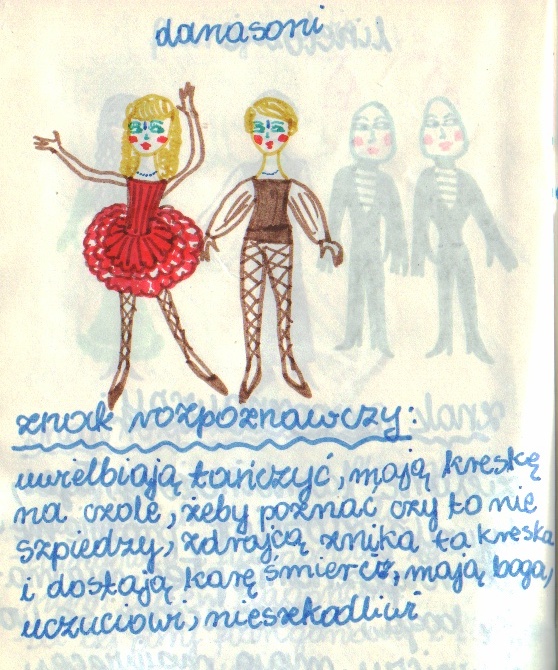 danasoni
znak rozpoznawczy:
uwielbiają tańczyć, mają kreskę
na czole, żeby poznać czy to nie
szpiedzy, zdrajcą znika ta kreska
i dostają karę śmierci, mają boga,
uczuciowi, nieszkodliwi